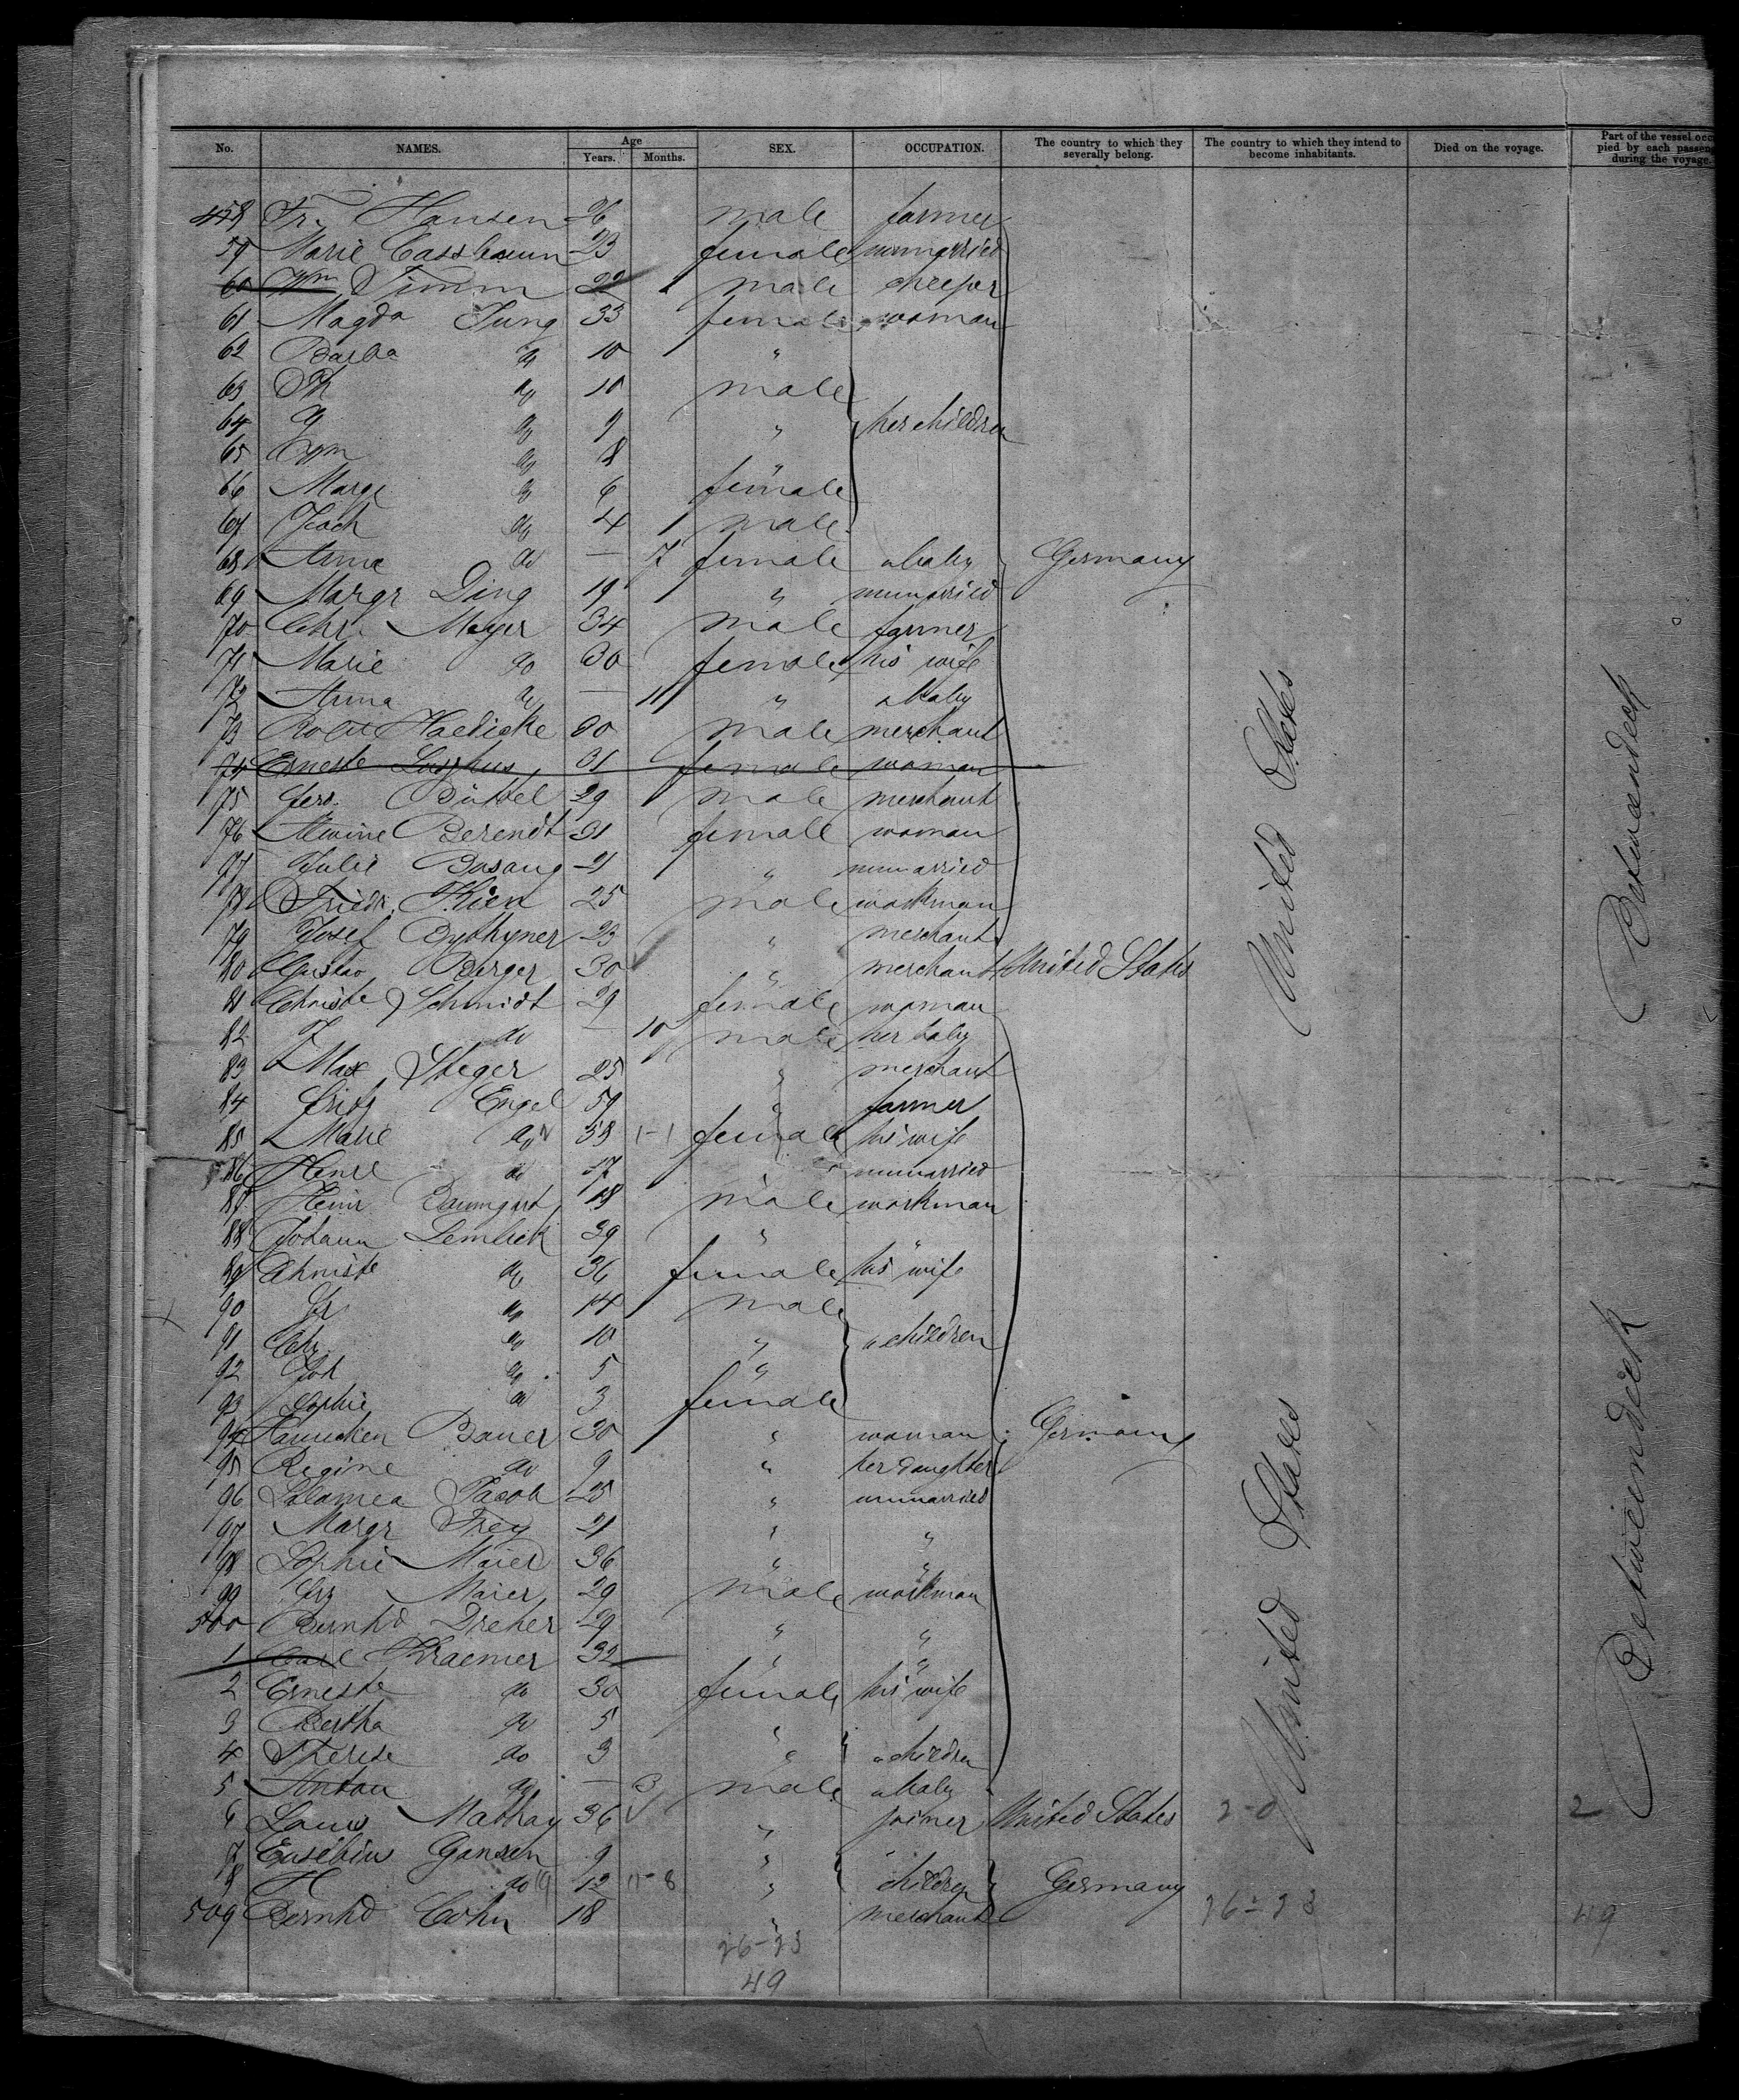 No. NAMES. Age Years. Months. SEX. OCCUPATION. The country to which they severally belong. The country to which they intend to become inhabitants. Died on the voyage. Part of the vessel occupied by each passenger during the voyage.
458 Fr. Hansen 26 male farmer
59 Marie Cassbaum 23 female unmarried
60 Wm Timm 22 male
61 Magda Jung 33 female woman
62 Barba do 10 "
63 do 10 male
64 do 9 " her children
65 do 8 "
66 Margr do 6 female
67 Joach do 4 male
68 Anna do — 7 female a baby Germany
69 Margr Ding 19 " unmarried
70 Chr. Meyer 34 male farmer
71 Marie do 30 female his wife
72 Anna do — 11 " a baby
73 Robt Haedicke 30 male merchant
74 Erneste 31 female woman
75 Ferd. Büttel 29 male merchant
76 Alwine Berendt 31 female woman
77 Julie Basang 21 " unmarried
78 Friedr. Klien 25 male workman
79 Josef Bythyner 23 " merchant
80 Gustav Berger 30 " merchant United States
81 Christe Schmidt 29 female woman
82 F do — 10 male her baby
83 Max Steger 25 " merchant
84 Fritz Engel 59 " farmer
85 Marie do 53 1-1 female his wife
86 Henre do 17 " unmarried
87 Heinr Baumgart 18 male workman
88 Johann Lembck 39 " "
89 Christe do 36 female his wife
90 Fr do 14 male
91 Chr do 10 " " children
92 Joh do 5 "
93 Sophie do 3 female
94 Hannchen Bauer 30 " woman Germany
95 Regine do 9 " her daughter
96 Salomea Jacob 25 " unmarried
97 Margr Frey 21 " "
98 Sophie Maier 36 " "
99 Frz Maier 29 male workman
500 Bernhd Dreher 29 " "
1 Carl Kraemer 32 " "
2 Erneste do 30 female his wife
3 Bertha do 5 "
4 Therese do 3 " " children
5 Anton do — 3 male a baby
6 Louis Mathay 36 " joiner United States 2-0 2
7 Eusebius Gansen 9 "
8 H do 12 11-8 " children Germany
509 Bernhd Cohn 18 " merchant 26-23 49
26-23
49
United States
United States
Betweendeck
Betweendeck